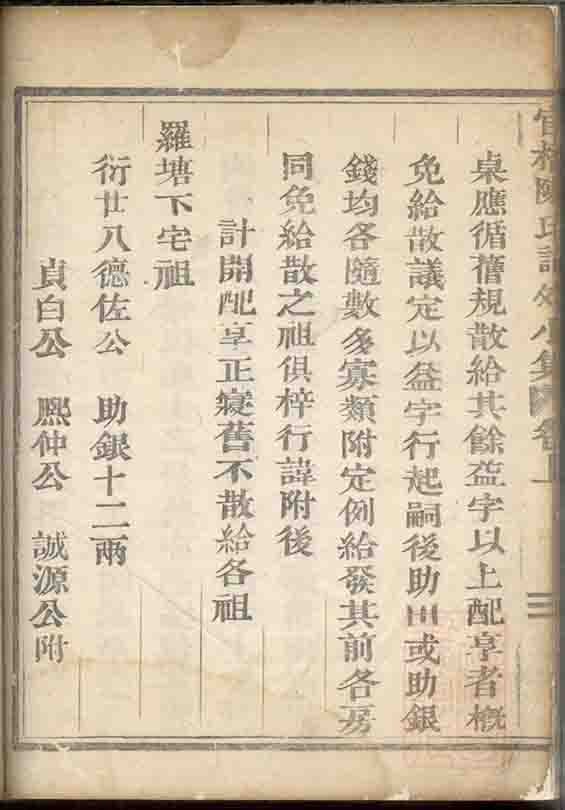 桌應循舊規散給其餘益字以上配享者概
免給散議定以益字行起嗣後助田或助銀
錢均各隨數多寡類附定例給發其前各房
同免給散之祖俱梓行諱附後
計開配享正寢舊不散給各祖
羅塘下宅祖
衍廿八德佐公 助銀十二兩
貞白公 熈仲公 誠源公附